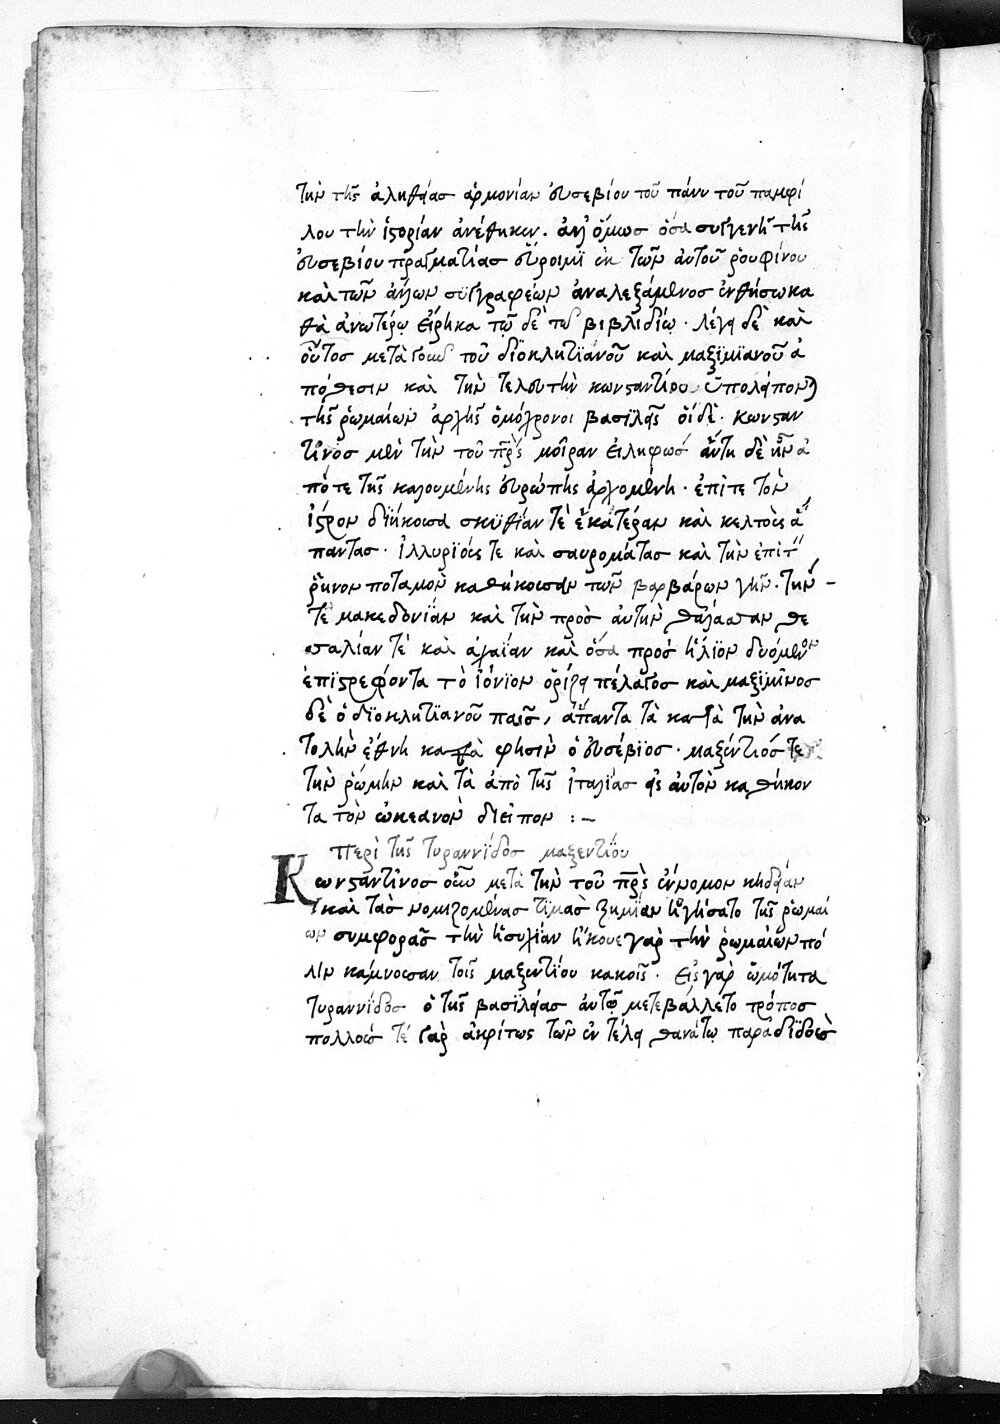 τὴν τῆς ἀληθείας ἁρμονίαν εὐσεβίου τοῦ πάνυ τοῦ παμφί
λου τὴν ἱστορίαν ἀνέθηκεν. ἀλλ' ὅμως ὅσα συγγενῆ τῆς
εὐσεβίου πραγματείας εὕροιμι ἐκ τῶν αὐτοῦ ῥουφίνου
καὶ τῶν ἄλλων συγγραφέων ἀναλεξάμενος ἐνθήσω κα
θὰ ἀνωτέρω εἴρηκα τῷδε τῷ βιβλιδίῳ. λέγει δὲ καὶ
οὗτος μετὰ τοῦ διοκλητιανοῦ καὶ μαξιμιανοῦ ἀ
πόθεσιν καὶ τὴν τελευτὴν κωνσταντίου ὑπολείπονται
τῆς ῥωμαίων ἀρχῆς ὁμόχρονοι βασιλεῖς οἵδε. κωνσταν
τῖνος μὲν τὴν τοῦ πρς μοῖραν εἰληφώς αὕτη δὲ ἦν ἀ
πό τε τῆς καλουμένης εὐρώπης ἀρχομένη. ἐπί τε τὸν
ἴστρον διήκουσα σκυθίαν τὲ ἑκατέραν καὶ κελτοὺς ἅ
παντας. ἰλλυριούς τε καὶ σαυρομάτας καὶ τὴν ἐπὶ τ
ῥῆνον ποταμὸν καθήκουσαν τῶν βαρβάρων γῆν. τήν
τε μακεδονίαν καὶ τὴν πρὸς αὐτὴν θάλασσαν θε
σαλίαν τὲ καὶ ἀχαΐαν καὶ ὅσα πρὸς ἥλιον δυόμενον
ἐπιστρεφόντα τὸ ἰόνιον ὁρίζει πέλαγος καὶ μαξιμῖνος
δὲ ὁ διοκλητιανοῦ παῖς, ἅπαντα τὰ κατὰ τὴν ἀνα
τολὴν ἔθνη καθὰ φησὶν ὁ εὐσέβιος. μαξέντιός τε
τὴν ῥώμην καὶ τὰ ἀπὸ τῆς ἰταλίας εἰς αὐτὸν καθήκον
τα τὸν ὠκεανὸν διεῖπον :–
Περὶ τῆς τυραννίδος μαξεντίου
Κωνσταντῖνος οὖν μετὰ τὴν τοῦ πρς ἔννομον κηδείαν
καὶ τὰς νομιζομένας τιμὰς ζημίαν ἡγήσατο τῆς ῥωμαί
ων συμφορᾶς τὴν ἡσυχίαν ἤκουε γὰρ τὴν ῥωμαίων πό
λιν κάμνουσαν τοῖς μαξεντίου κακοῖς. εἰς γὰρ ὠμότητα
τυραννίδος ὁ τῆς βασιλείας αὐτῷ μετεβάλλετο τρόπος
πολλούς τέ γὰρ ἀκρίτως τῶν ἐν τέλει θανάτῳ παραδιδοὺς